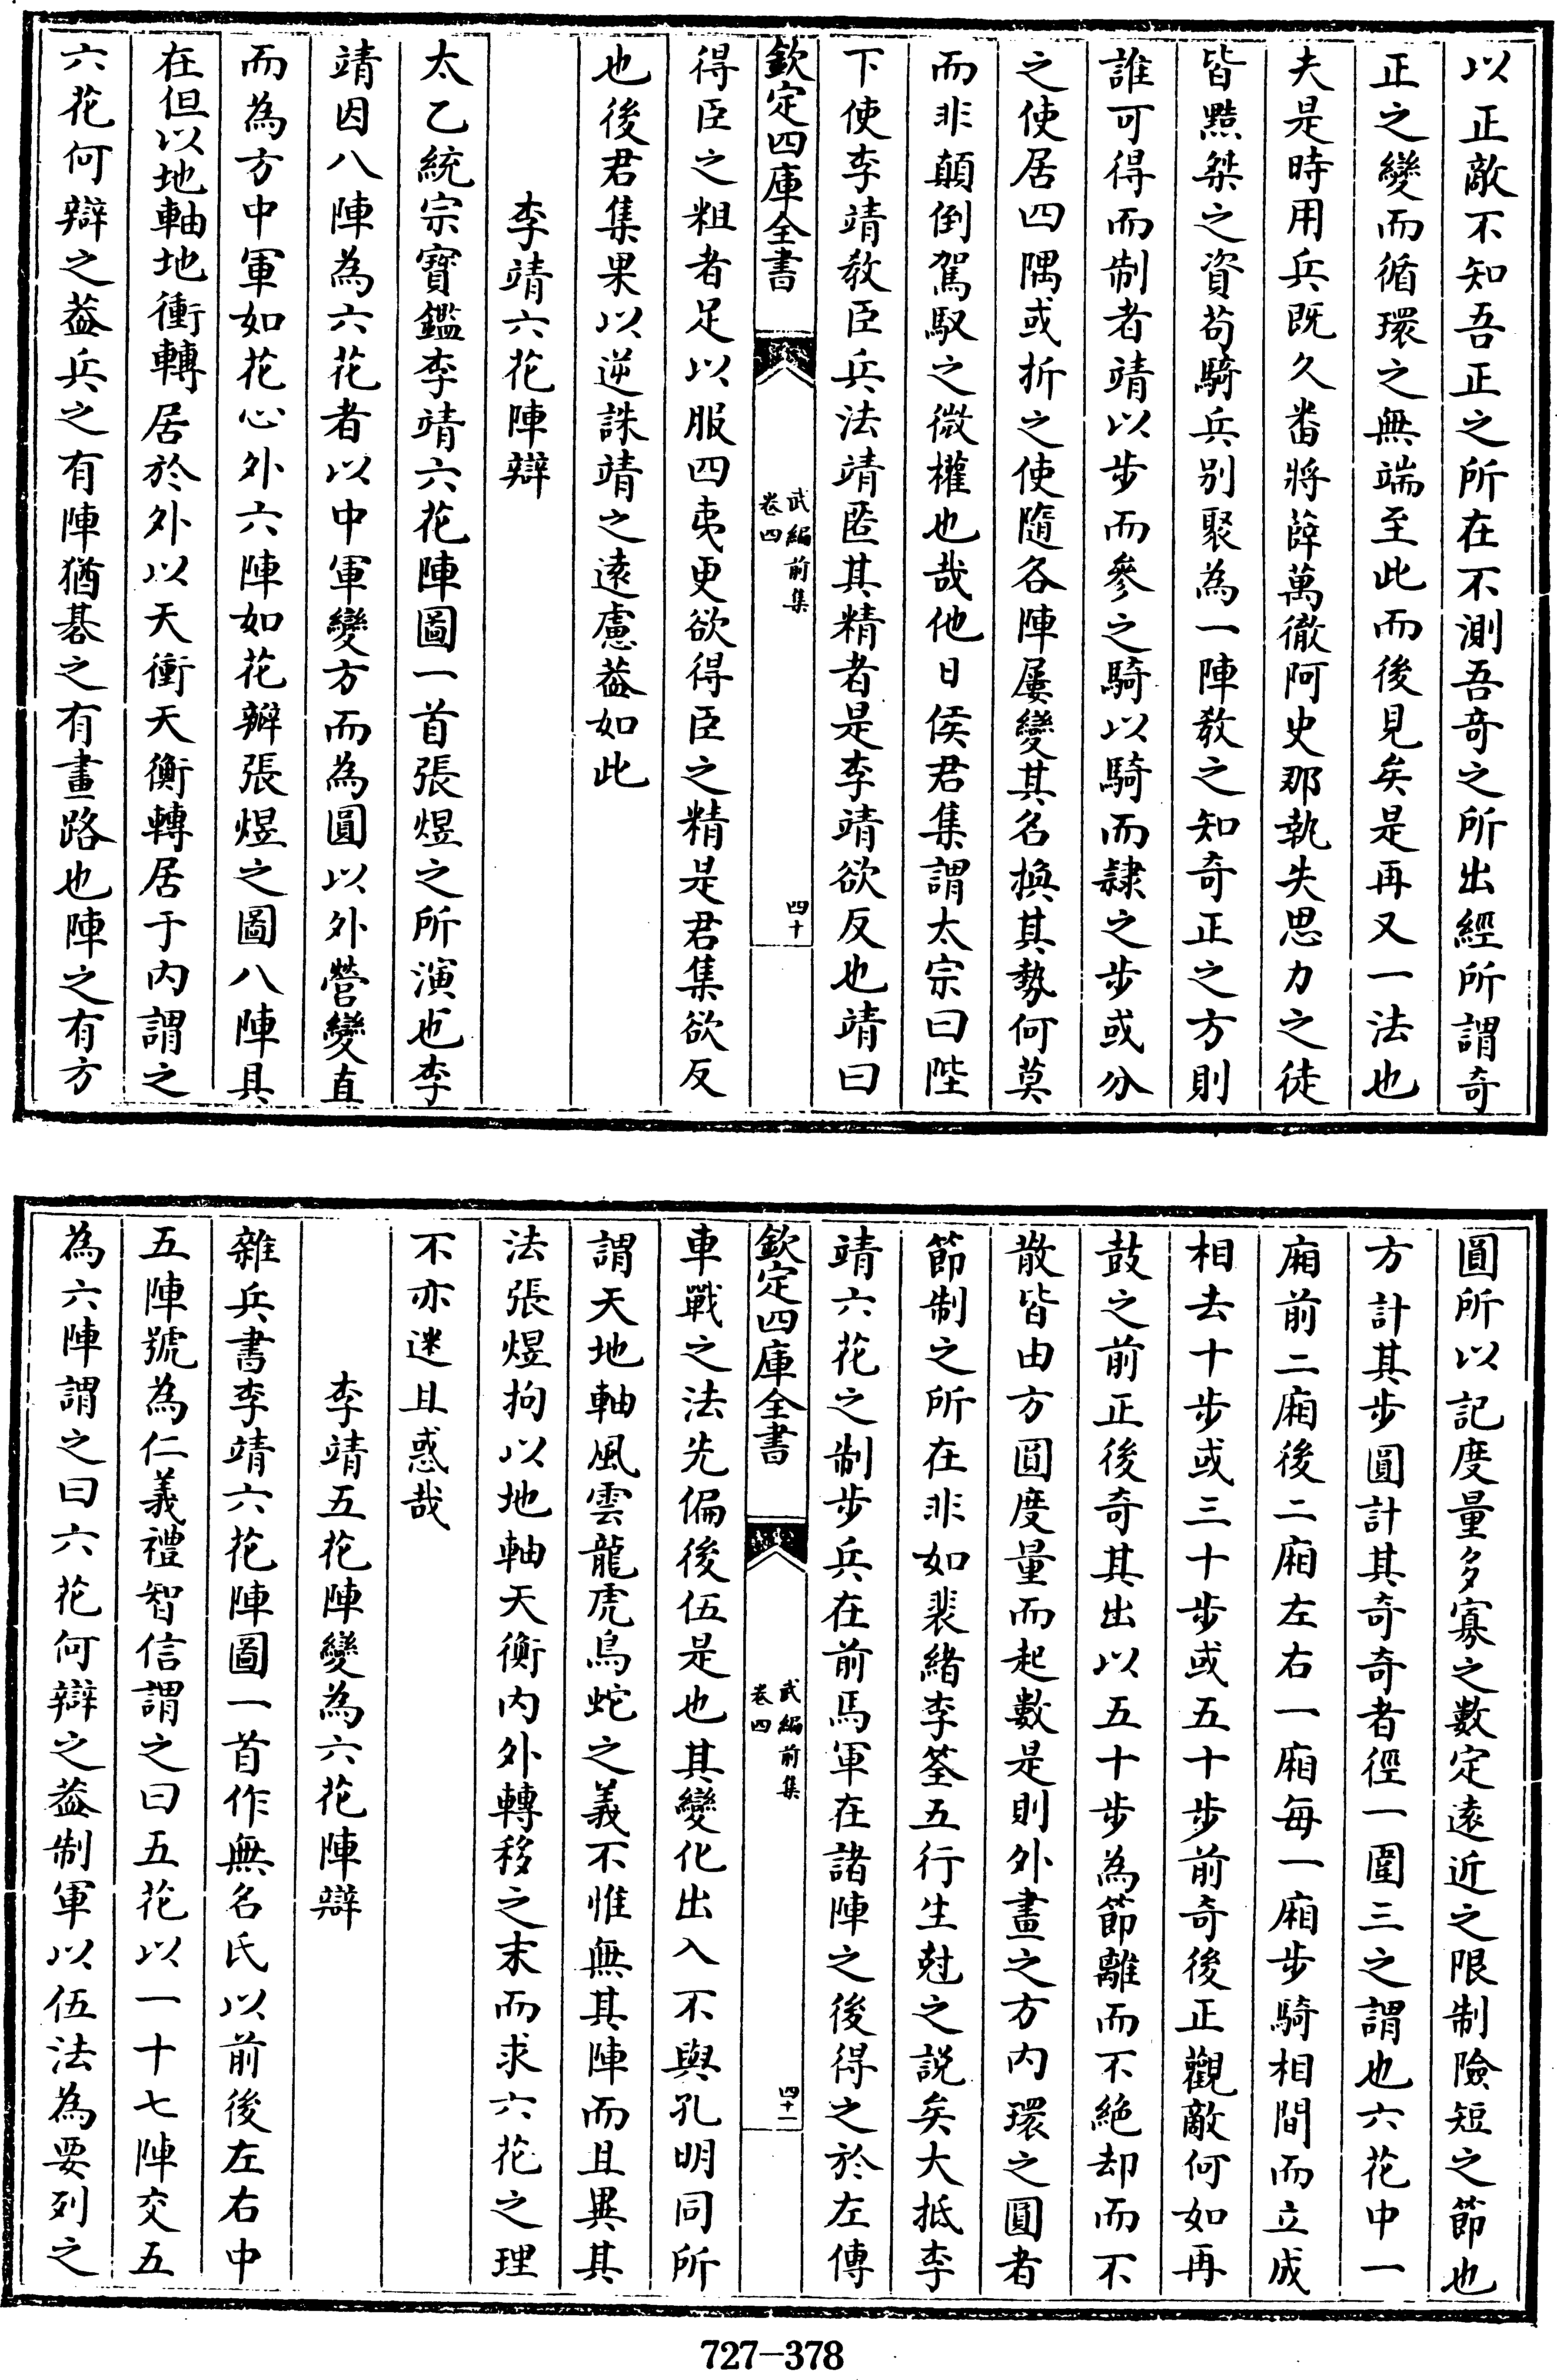 以正敵不知吾正之所在不測吾竒之所出經所謂奇
正之變而循環之無端至此而後見矣是再又一法也
夫是時用兵既久畨將薛萬徹阿史那執失思力之徒
皆黠桀之資苟騎兵别聚為一陣教之知奇正之方則
誰可得而制者靖以步而參之騎以騎而隸之步或分
之使居四隅或折之使隨各陣屢變其名換其勢何莫
而非顛倒駕馭之微權也哉他日侯君集謂太宗曰陛
下使李靖教臣兵法靖匿其精者是李靖欲反也靖曰
欽定四庫全書
武編前集
卷四
四十
得臣之粗者足以服四夷更欲得臣之精是君集欲反
也後君集果以逆誅靖之遠慮葢如此
李靖六花陣辯
太乙統宗寶鑑李靖六花陣圖一首張煜之所演也李
靖因八陣為六花者以中軍變方而為圓以外營變直
而為方中軍如花心外六陣如花辦張煜之圖八陣具
在但以地軸地衝轉居於外以天衝天衡轉居于内謂之
六花何辯之葢兵之有陣猶碁之有畫路也陣之有方
圓所以記度量多寡之數定遠近之限制險短之節也
方計其步圓計其奇奇者徑一圍三之謂也六花中一
廂前二廂後二廂左右一廂每一廂步騎相間而立成
相去十步或三十步或五十步前奇後正觀敵何如再
鼓之前正後奇其出以五十步為節離而不絶却而不
散皆由方圓度量而起數是則外畫之方内環之圓者
節制之所在非如裴緒李筌五行生尅之説矣大抵李
靖六花之制步兵在前馬軍在諸陣之後得之於左傳
欽定四庫全書
武編前集
卷四
四十一
車戰之法先偏後伍是也其變化出入不與孔明同所
謂天地軸風雲龍虎鳥蛇之義不惟無其陣而且異其
法張煜拘以地軸天衡内外轉移之末而求六花之理
不亦迷且惑哉
李靖五花陣變為六花陣辯
雜兵書李靖六花陣圖一首作無名氏以前後左右中
五陣號為仁義禮智信謂之曰五花以一十七陣交五
為六陣謂之曰六花何辯之葢制軍以伍法為要列之
727-378